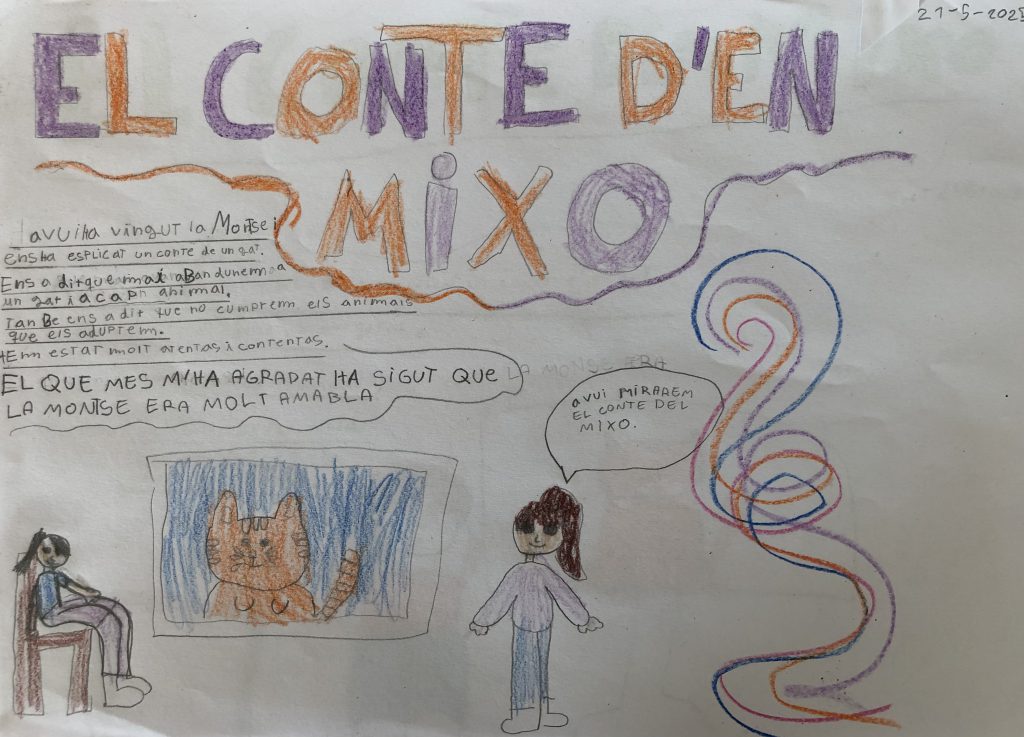 21-5-2025
EL CONTE D'EN
MIXO
avui ha vingut la Montse i
ens ha esplicat un conte de un gat.
Ens a dit que mai aBandunem a
un gat i a cap animal.
TanBe ens a dit que no cumprem els animals
que els aduptem.
HEm estat molt atentas i contentas.
EL QUE MES M'HA AGRADAT HA SIGUT QUE
LA MONTSE ERA MOLT AMABLA
LA MONSE ERA
avui MIRAREM
EL CONTE DEL
MIXO.